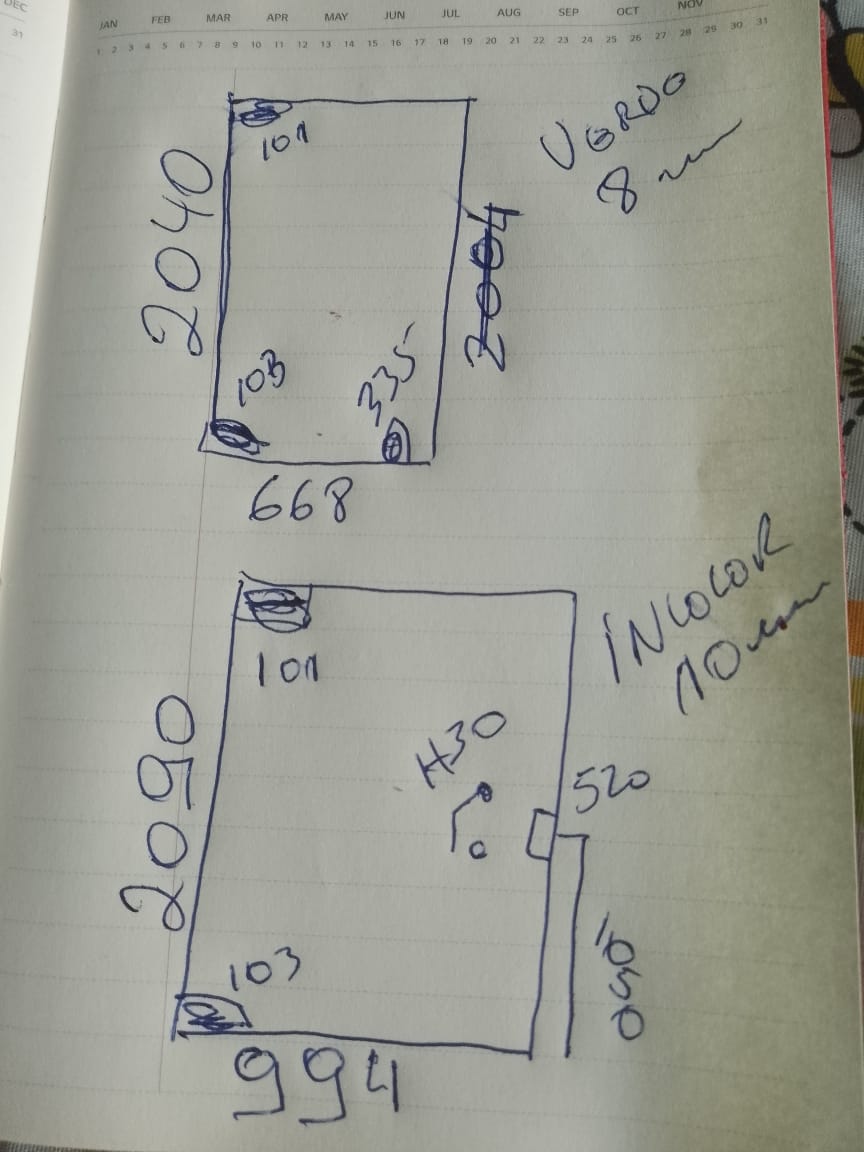 DEC
31
JAN FEB MAR APR MAY JUN JUL AUG SEP OCT NOV
1 2 3 4 5 6 7 8 9 10 11 12 13 14 15 16 17 18 19 20 21 22 23 24 25 26 27 28 29 30 31
101
VERDE
8 mm
2040
2004
103
335
668
INCOLOR
10 mm
101
H30
520
2090
1050
103
994